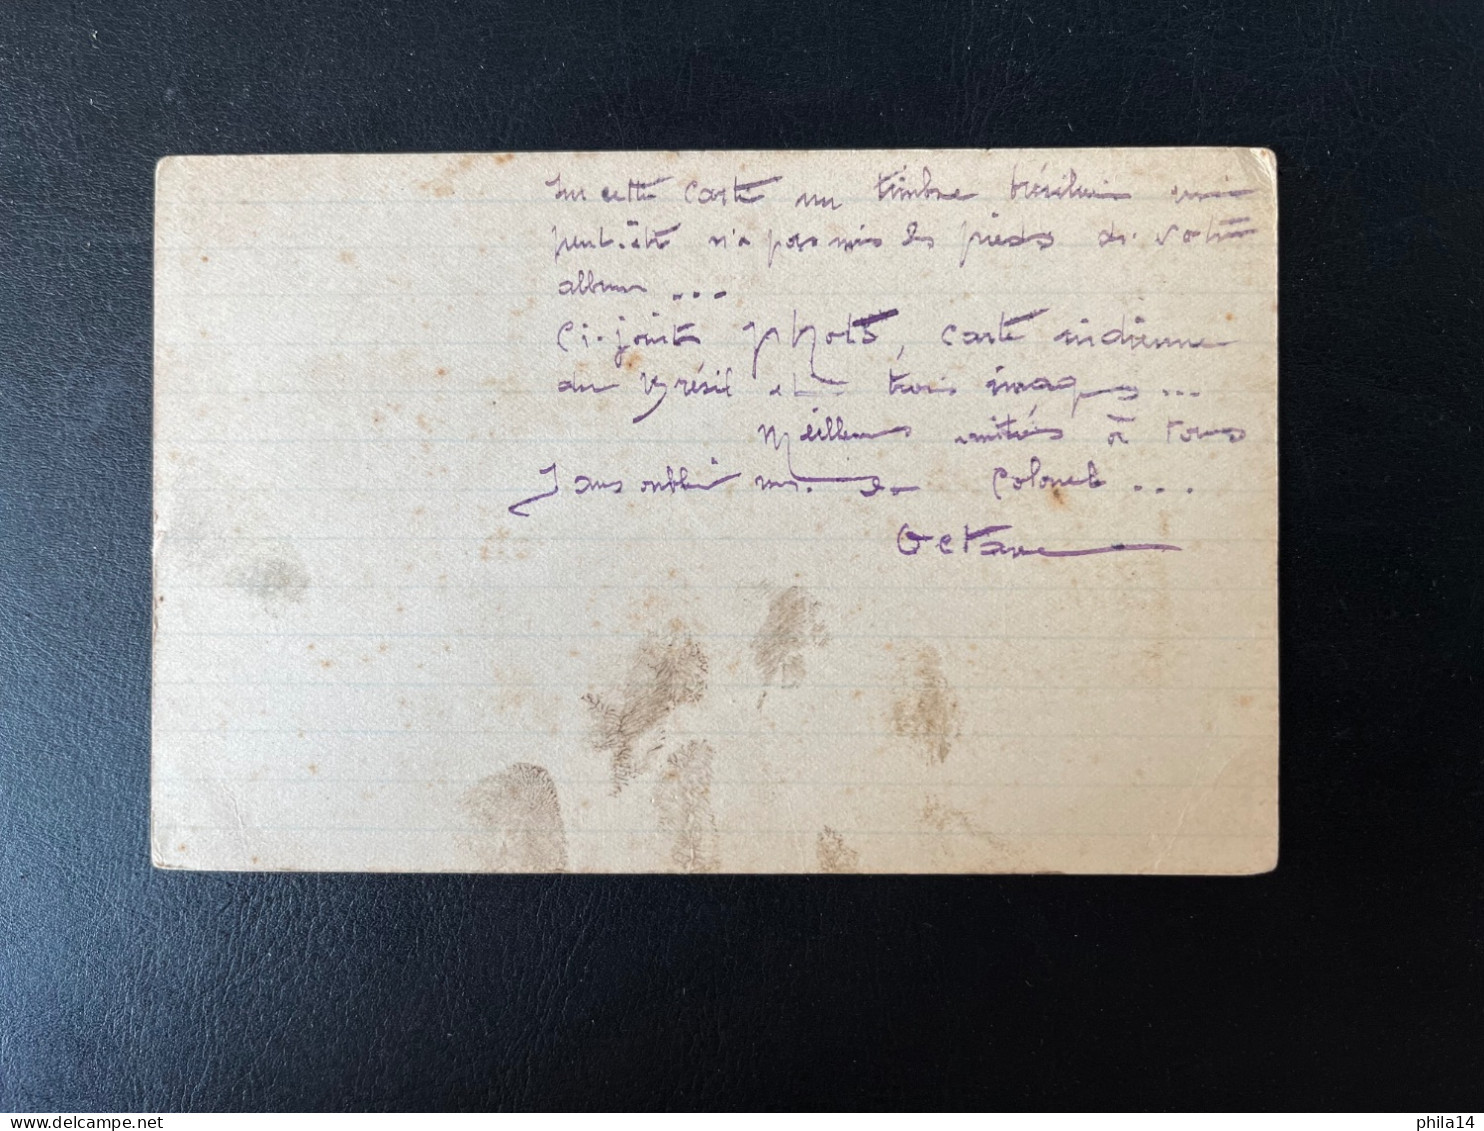 Sur cette carte un timbre brésilien qui
peut-être n'a pas mis les pieds ds votre
album ...
Ci-joint photo, carte indienne
du Brésil et trois images ...
Meilleures amitiés à tous
Sans oublier Colonel ...
Octave
phila14